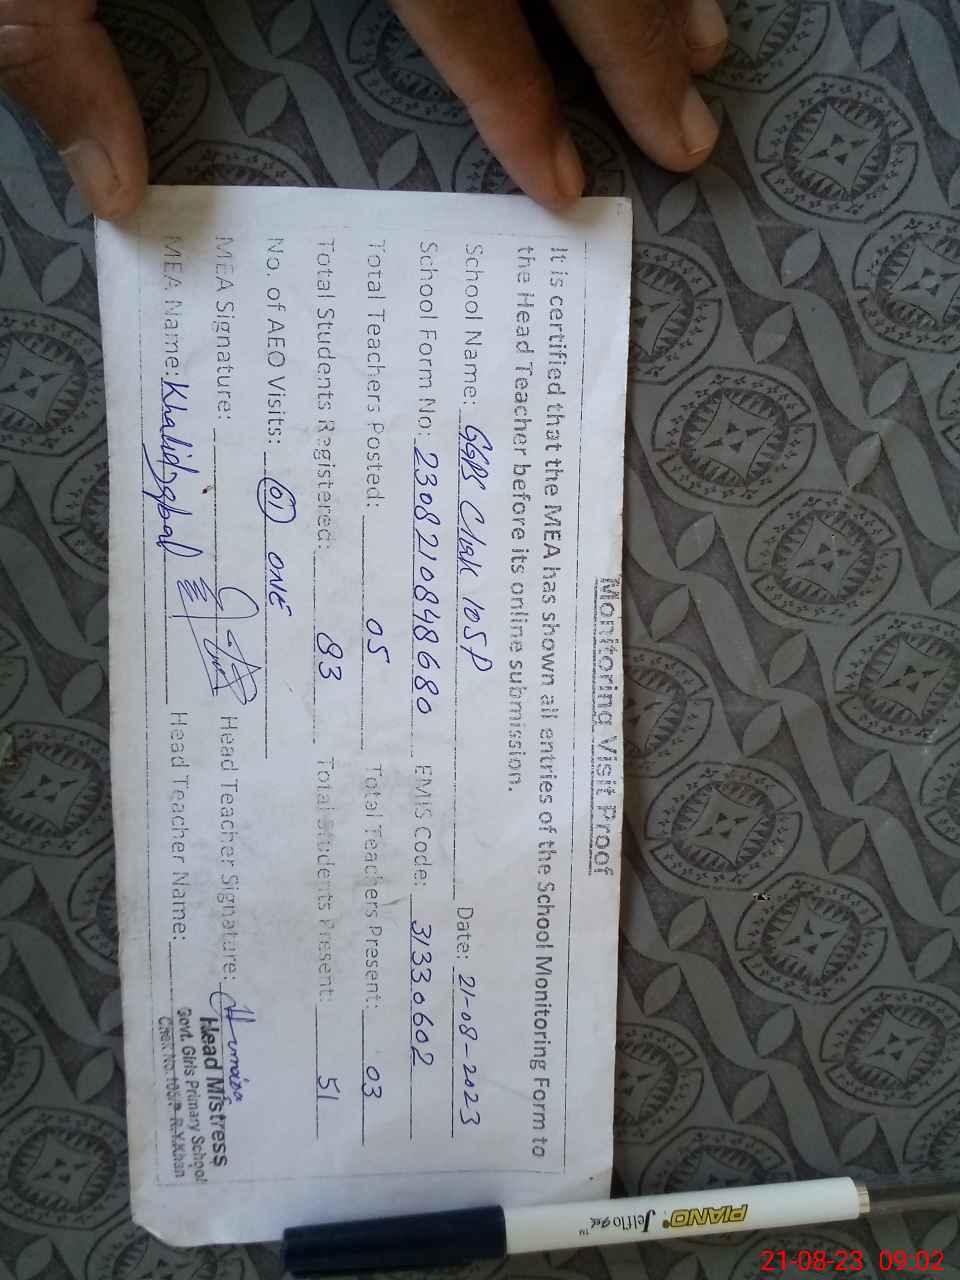 Monitoring Visit Proof
It is certified that the MEA has shown all entries of the School Monitoring Form to
the Head Teacher before its online submission.
School Name: GGPS Chak 105P Date: 21-08-2023
School Form No: 2308210848680 EMIS Code: 31330602
Total Teachers Posted: 05 Total Teachers Present: 03
Total Students Registered: 83 Total Students Present: 51
No. of AEO Visits: 01 ONE
MEA Signature: Head Teacher Signature: Humaira
MEA Name: Khalid Iqbal Head Teacher Name:
Head Mistress
Govt. Girls Primary School
Chak No. 105/P R.Y.Khan
PIANO Jelflo gel TM
21-08-23 09:02